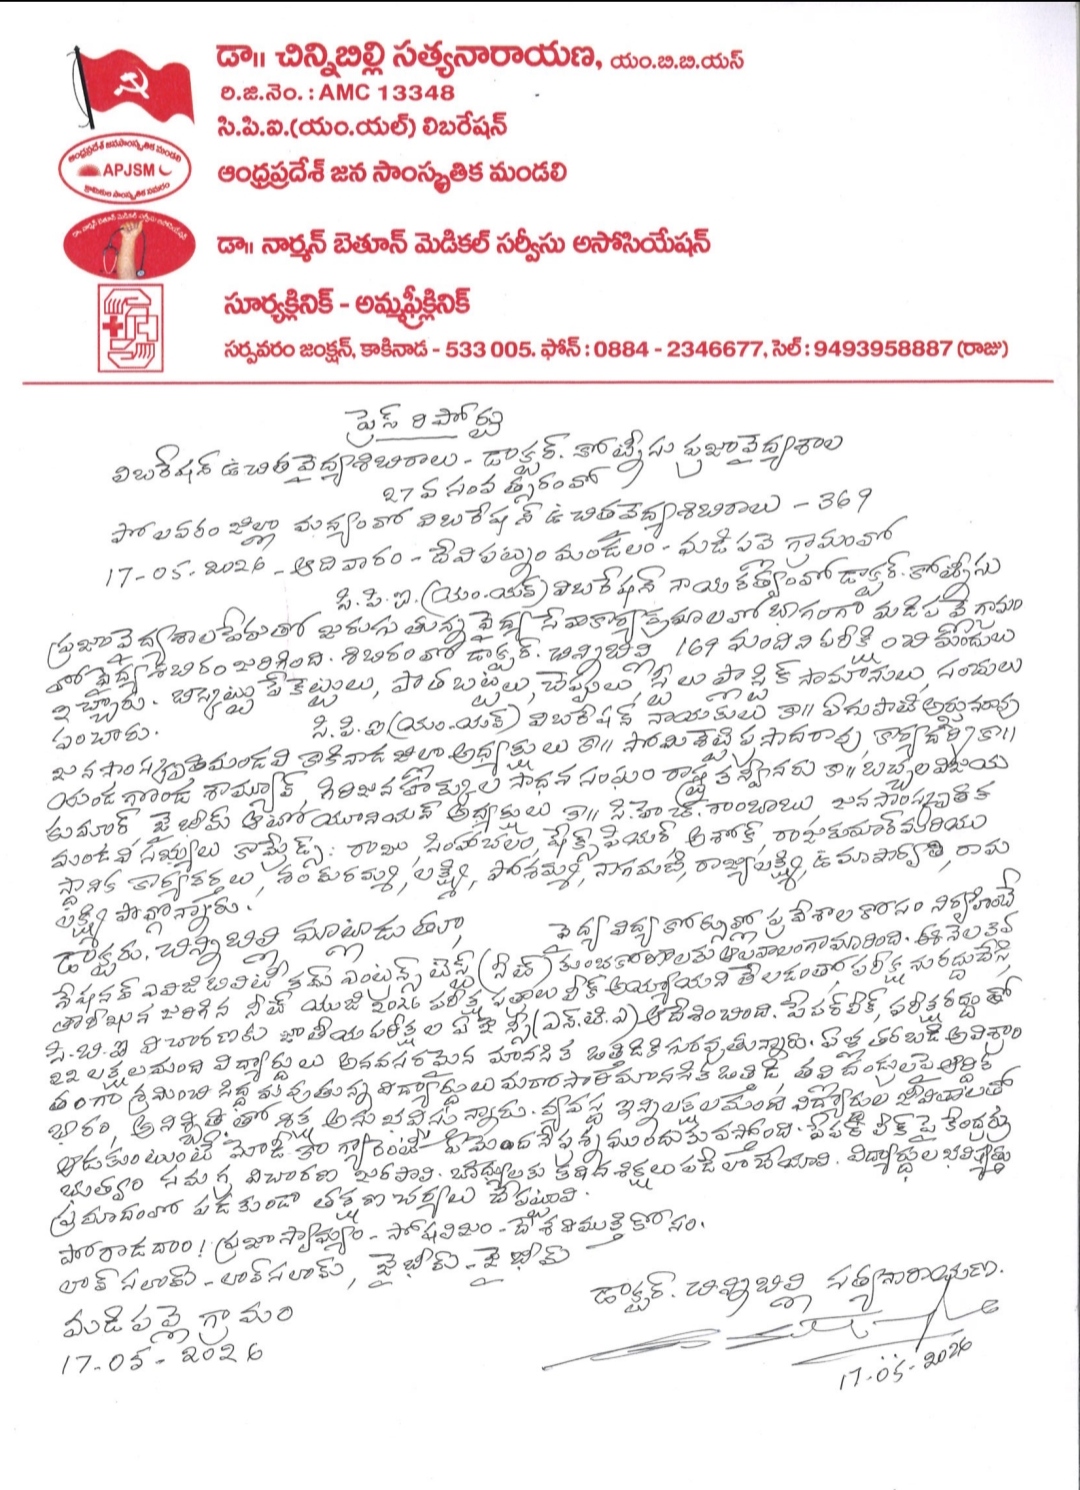 డా॥ చిన్నిబిల్లి సత్యనారాయణ, యం.బి.బి.యస్
రి.జి.నెం. : AMC 13348
సి.పి.ఐ.(యం.యల్) లిబరేషన్
ఆంధ్రప్రదేశ్ జనసాంస్కృతిక మండలి
APJSM
ఆంధ్రప్రదేశ్ జన సాంస్కృతిక మండలి
డా॥ నార్మన్ బెతూన్ మెడికల్ సర్వీసు అసోసియేషన్
సూర్యక్లినిక్ - అమ్మఫ్రీక్లినిక్
సర్పవరం జంక్షన్, కాకినాడ - 533 005. ఫోన్ : 0884 - 2346677, సెల్ : 9493958887 (రాజు)
ప్రెస్ రిపోర్టు
లిబరేషన్ ఉచిత వైద్యశిబిరాలు - డాక్టర్. కోట్నీసు ప్రజావైద్యశాల
27వ సంవత్సరంలో
పోలవరం జిల్లా మన్యంలో లిబరేషన్ ఉచితవైద్యశిబిరాలు - 369
17-05-2026 - ఆదివారం - దేవిపట్నం మండలం - మడిపల్లె గ్రామంలో
సి.పి.ఐ.(యం.యల్) లిబరేషన్ నాయకత్వంలో డాక్టర్. కోట్నీసు
ప్రజావైద్యశాల పేరుతో జరుగుతున్న వైద్య సేవాకార్యక్రమాలలో భాగంగా మడిపల్లె గ్రామం
లో వైద్యశిబిరం జరిగింది. శిబిరంలో డాక్టర్. చిన్నిబిల్లి 169 మందిని పరీక్షించి మందులు
ఇచ్చారు. బిస్కెట్టు పేకెట్టులు, పాతబట్టలు, చెప్పులు, స్టీలు ప్లాస్టిక్ సామానులు, సంచులు
పంచారు. సి.పి.ఐ(యం.యల్) లిబరేషన్ నాయకులు కా॥ ఏగుపాటి అర్జునరావు
జనసాంస్కృతిమండలి కాకినాడ జిల్లా అధ్యక్షులు కా॥ సోమిశెట్టి ప్రసాదరావు, కార్యదర్శి కా॥
యండగొండ శామ్యూల్, గిరిజన హక్కుల సాధన సంఘం రాష్ట్ర కన్వీనరు కా॥ బచ్చల విజయ
కుమార్ జైభీమ్ ఆటోయూనియన్ అధ్యక్షులు కా॥ సి.హెచ్. రాంబాబు జనసాంస్కృతిక
మండలి సభ్యులు కామ్రేడ్స్: రాజు, సింహాచలం, షేక్స్పియర్, అశోక్, రాజకుమార్ మరియు
స్థానిక కార్యకర్తలు, శంకురమ్మ, లక్ష్మి, పోశమ్మ, నాగమణి, రాజ్యలక్ష్మి, ఉమాపార్వతి, రామ
లక్ష్మి పాల్గొన్నారు.
డాక్టరు. చిన్నిబిల్లి మాట్లాడుతూ, వైద్య విద్య కోర్సుల్లో ప్రవేశాల కోసం నిర్వహించే
నేషనల్ ఎలిజిబిలిటీ కమ్ ఎంట్రన్స్ టెస్ట్ (నీట్) కుంభకోణాలకు ఆలవాలంగా మారింది. ఈ నెల 3వ
తారీఖున జరిగిన నీట్ యుజి 2026 పరీక్ష పత్రాలు లీక్ అయ్యాయని తేలడంతో పరీక్షను రద్దుచేసి,
సి.బి.ఐ విచారణకు జాతీయ పరీక్షల ఏజెన్సీ (ఎన్.టి.ఎ) ఆదేశించింది. పేపర్ లీక్, పరీక్ష రద్దుతో
22 లక్షలమంది విద్యార్థులు అనవసరమైన మానసిక ఒత్తిడికి గురవుతున్నారు. ఏళ్ల తరబడి అవిశ్రాం
తంగా శ్రమించి సిద్ధమవుతున్న విద్యార్థులు మరోసారి మానసిక ఒత్తిడి, తల్లిదండ్రులపై ఆర్థిక
భారం, అనిశ్చితితో శిక్ష అనుభవిస్తున్నారు. వ్యవస్థ ఇన్నిలక్షలమంది విద్యార్థుల జీవితాలతో
ఆడుకుంటుంటే మోడీ కా గ్యారెంటీ ఏమైందనే ప్రశ్న ముందుకు వస్తోంది. పేపర్ లీక్ పై కేంద్రప్ర
భుత్వం సమగ్ర విచారణ జరపాలి. బాధ్యులకు కఠిన శిక్షలు పడేలా చేయాలి. విద్యార్థుల భవిష్యత్తు
ప్రమాదంలో పడకుండా తక్షణ చర్యలు చేపట్టాలి.
పోరాడదాం! ప్రజాస్వామ్యం - సోషలిజం - దేశవిముక్తి కోసం.
లాల్ సలామ్ - లాల్ సలామ్, జైభీమ్ - జైభీమ్
డాక్టర్. చిన్నిబిల్లి సత్యనారాయణ.
మడిపల్లె గ్రామం
17-05-2026
17-05-2026